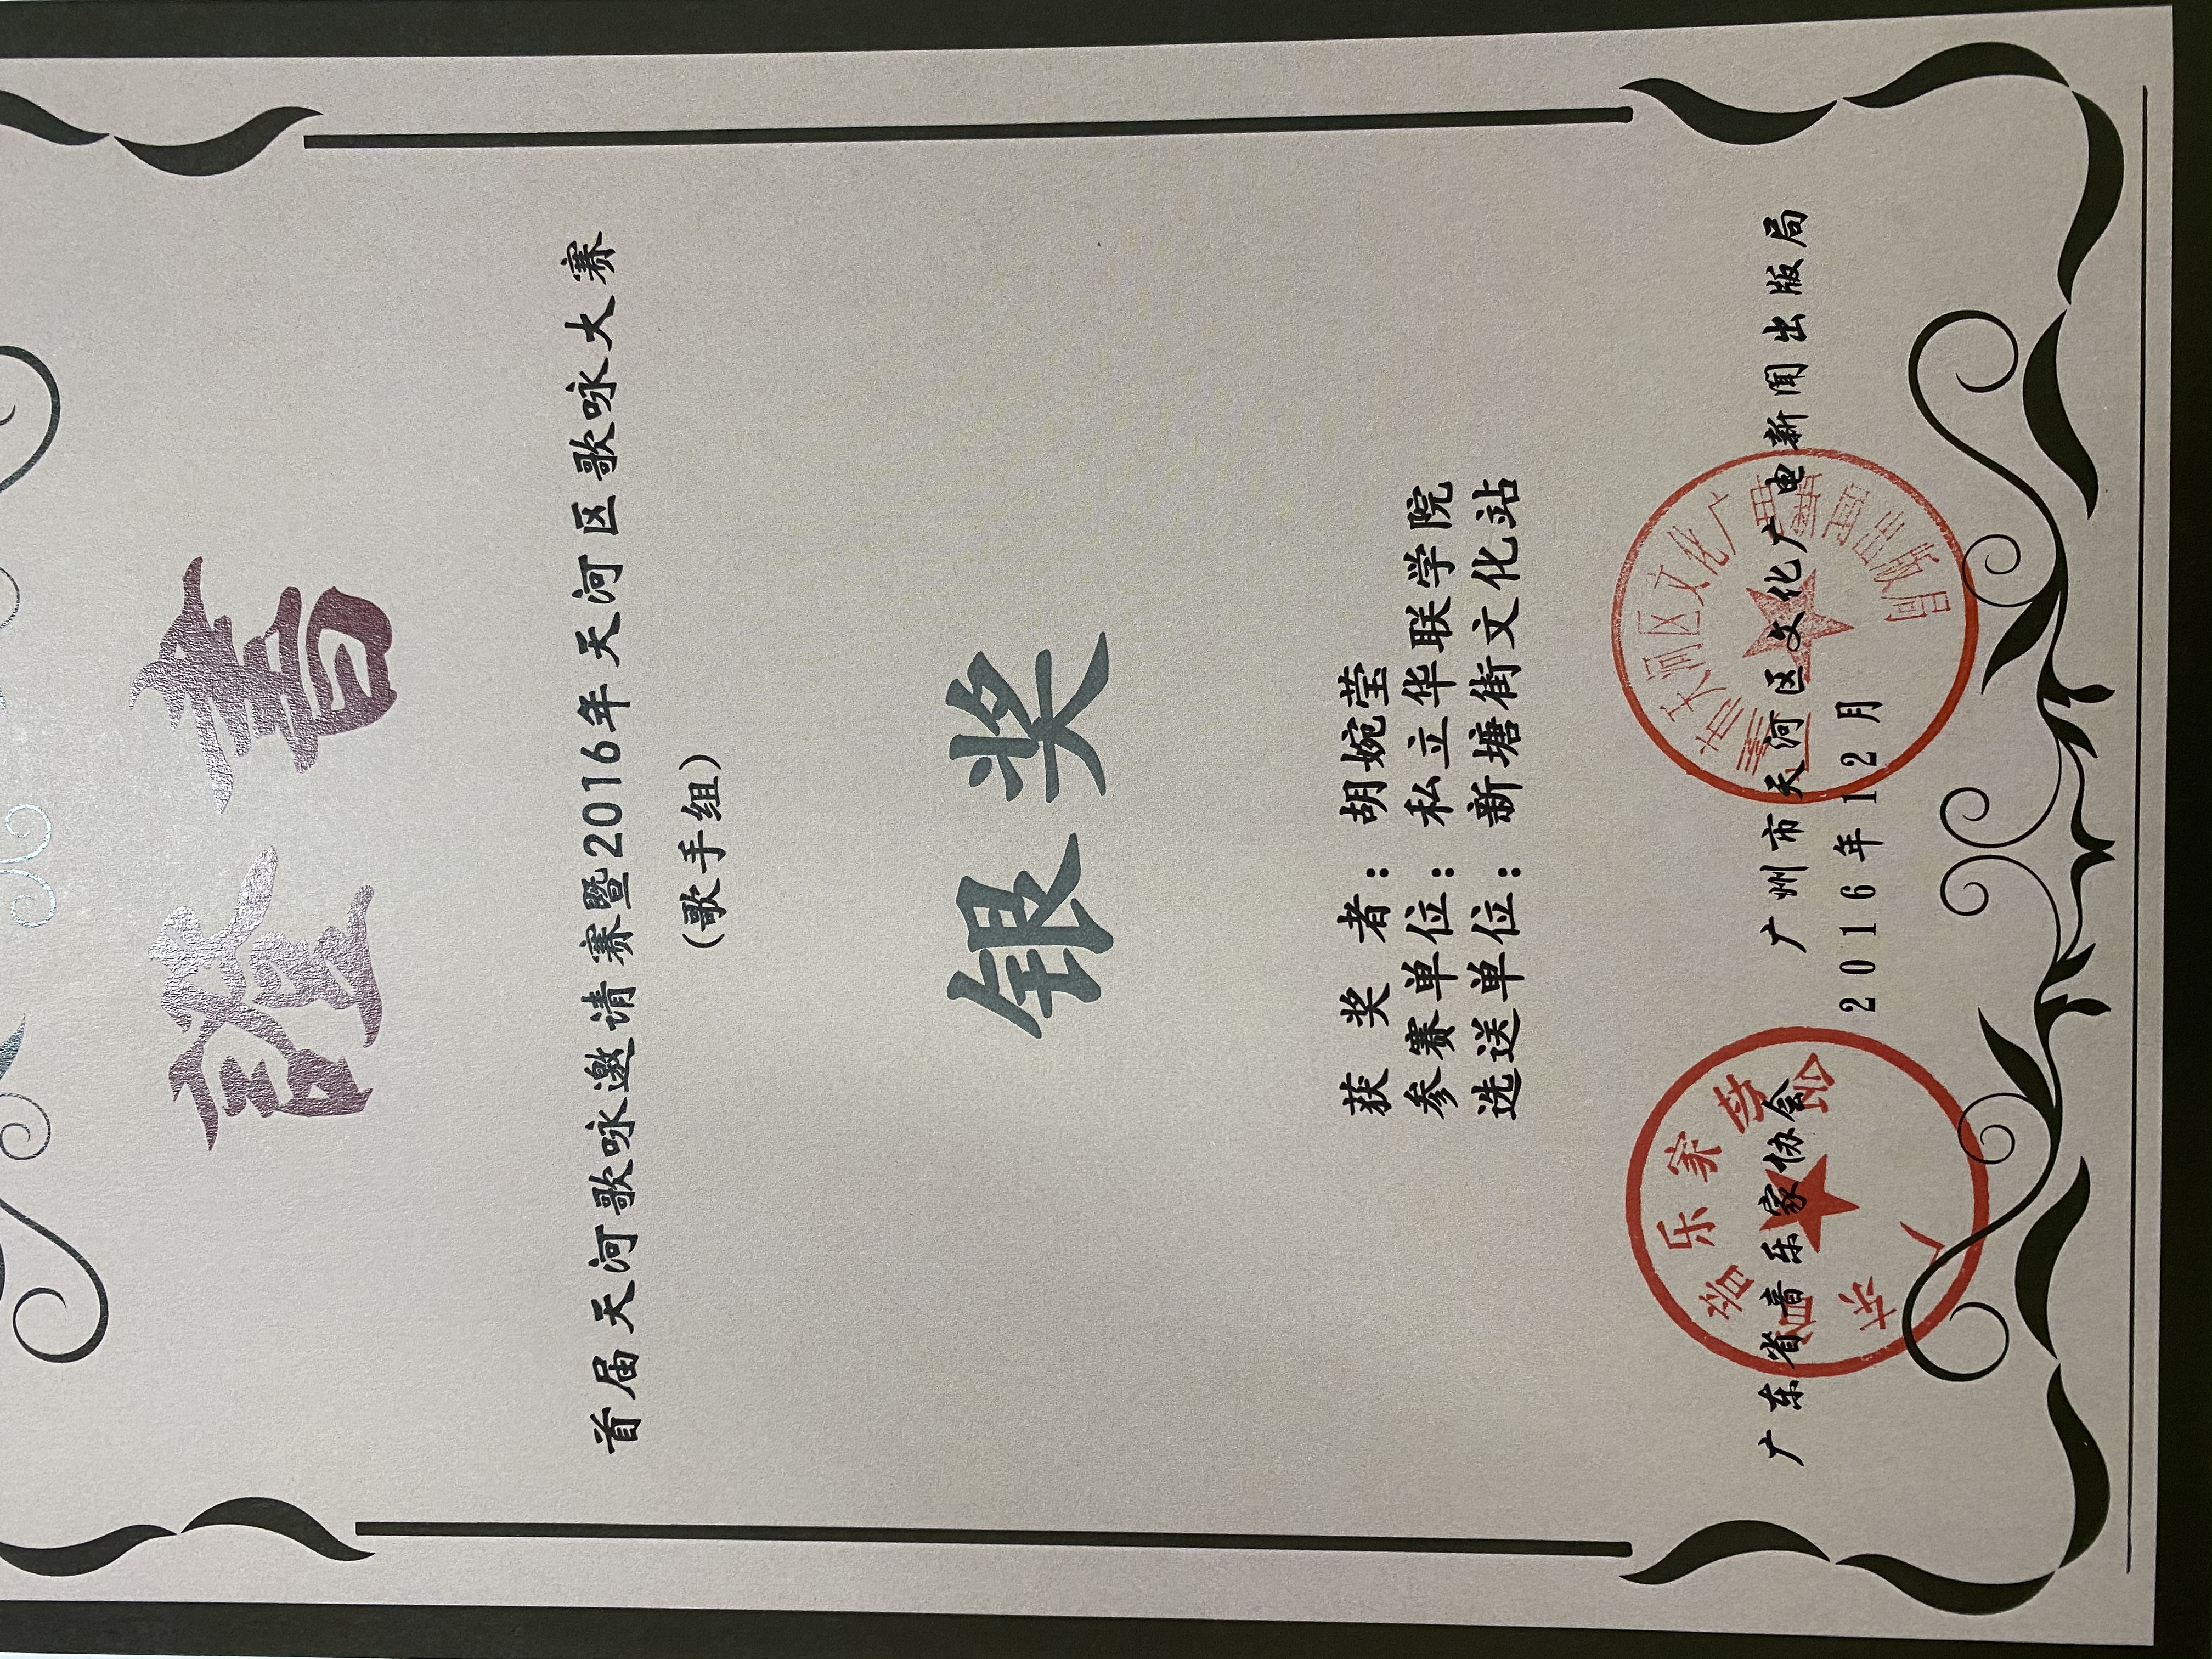 證書
首届天河歌咏邀请赛暨2016年天河区歌咏大赛
(歌手组)
银奖
获奖者：胡婉莹
参赛单位：私立华联学院
选送单位：新塘街文化站
广东省音乐家协会 广州市天河区文化广电新闻出版局
2016年12月
广东省音乐家协会
市天河区文化广电新闻出版局